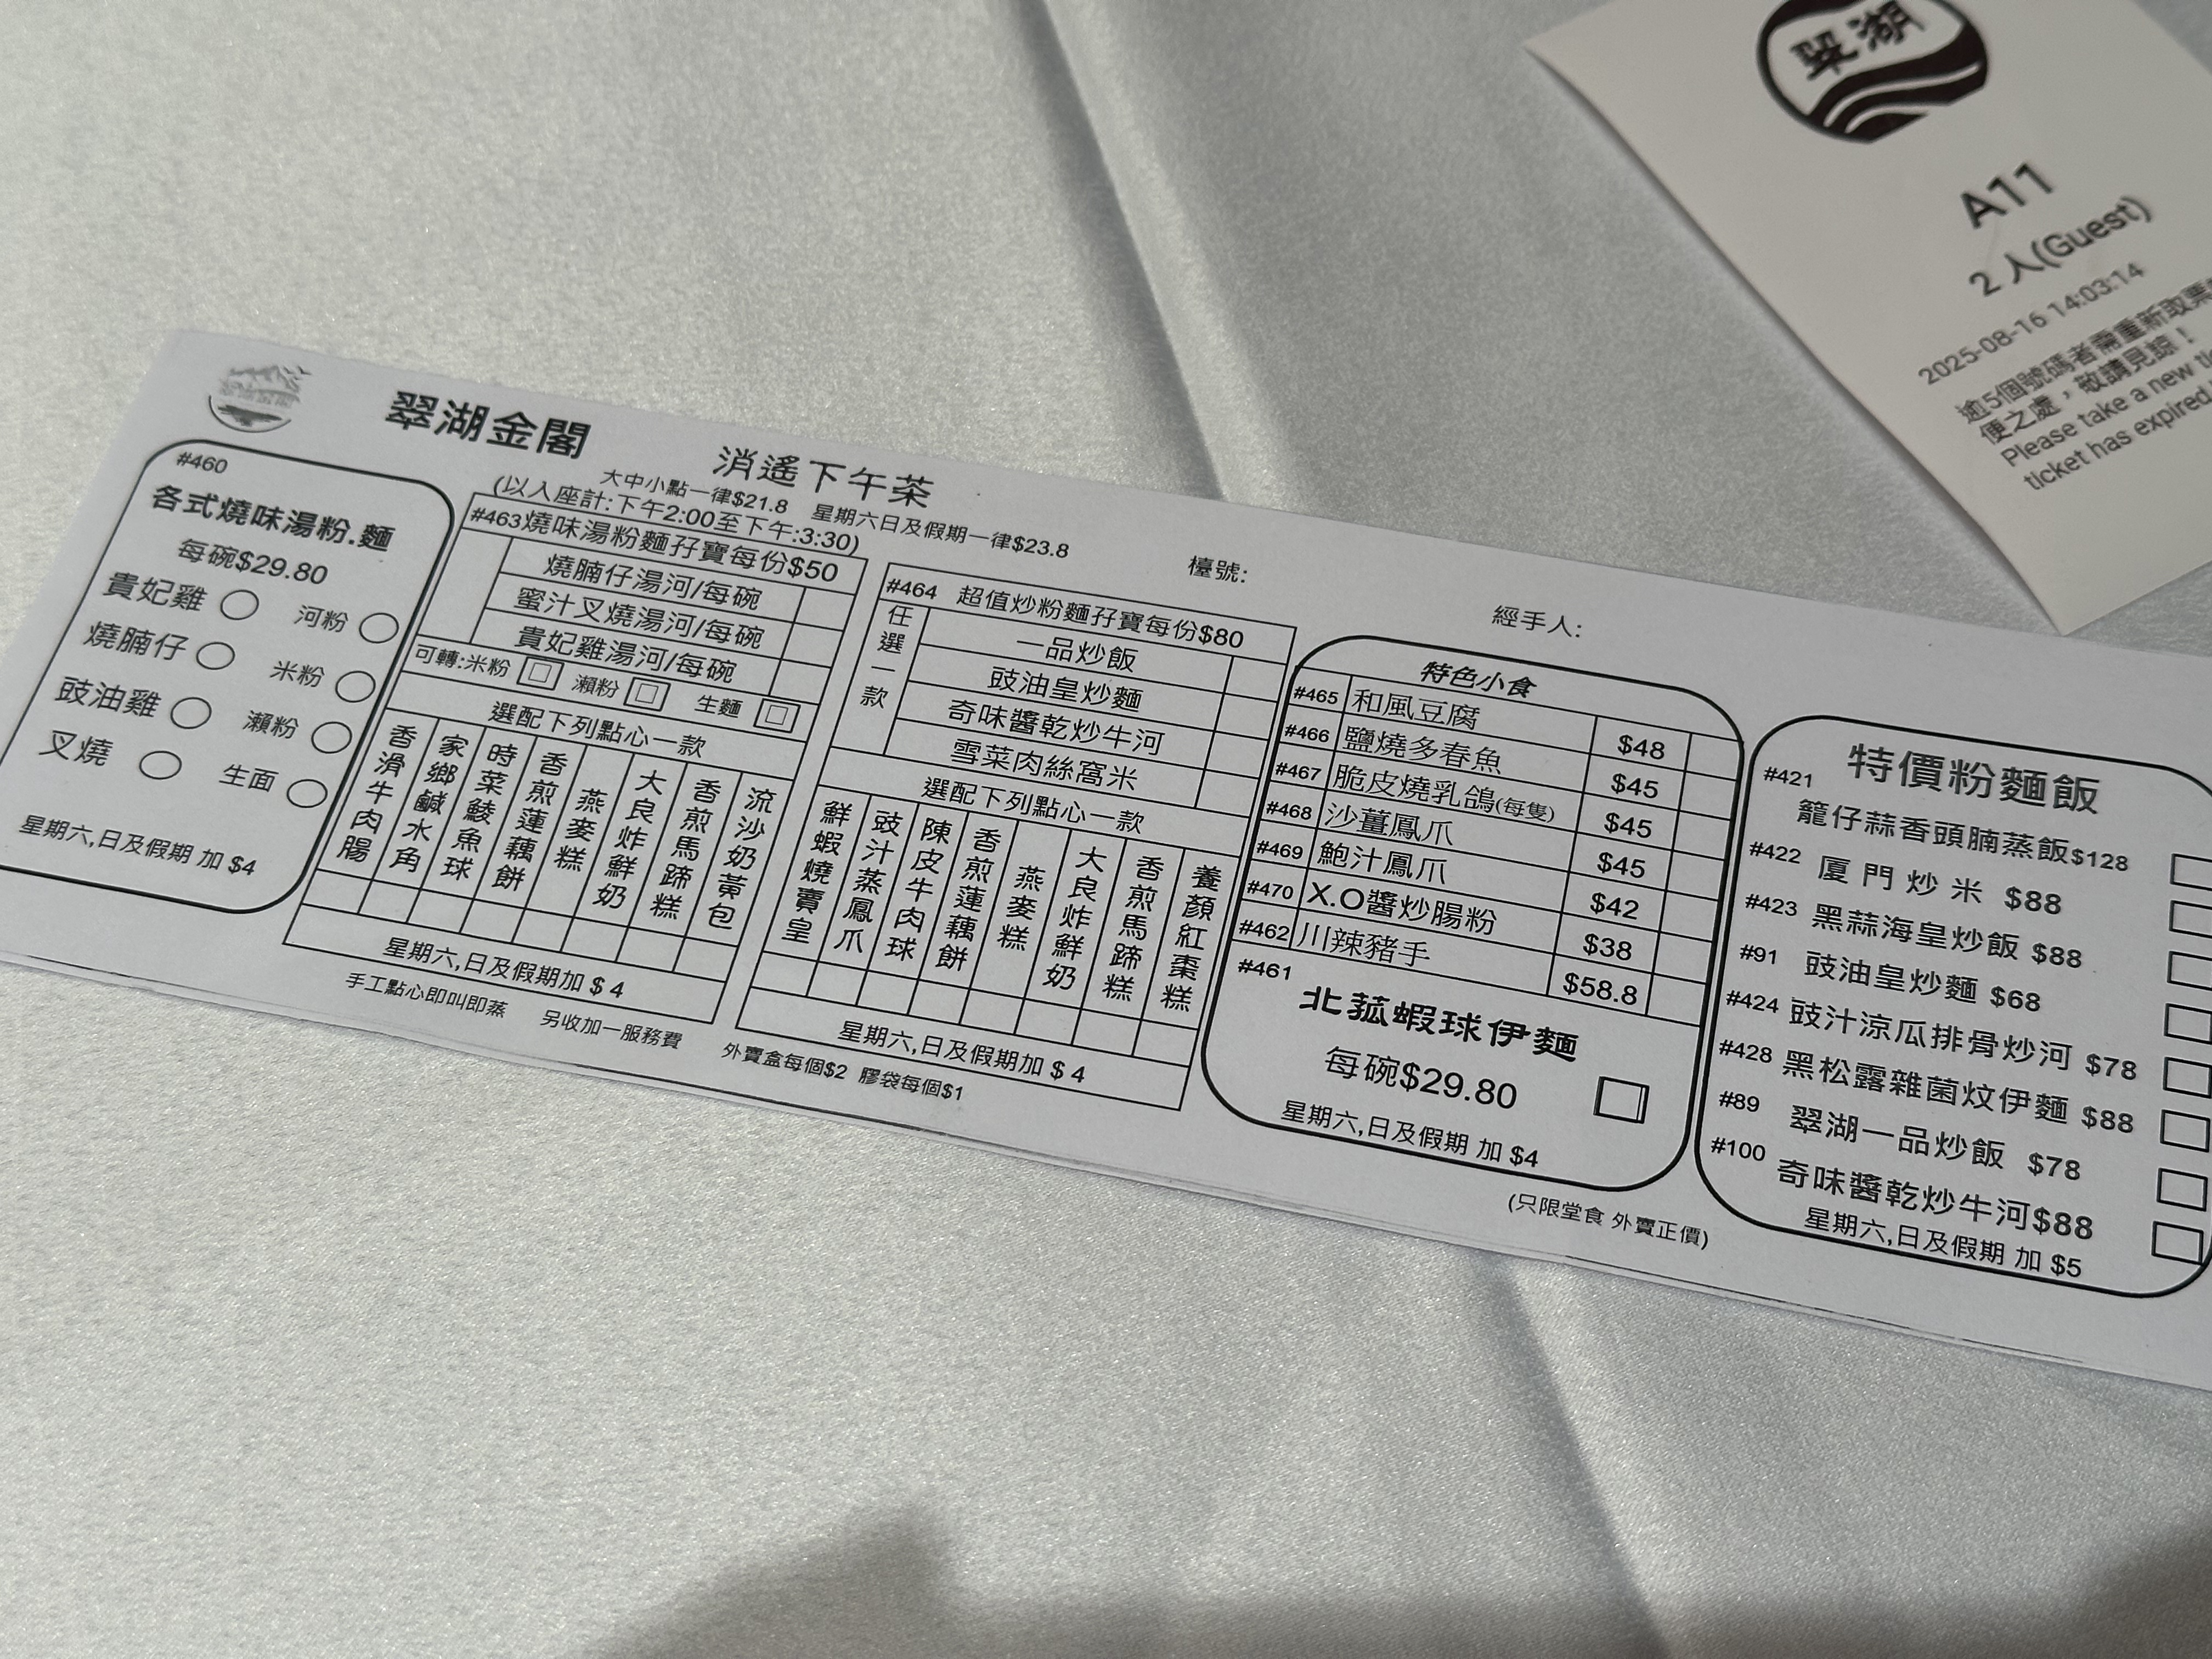 翠湖
A11
2 人(Guest)
2025-08-16 14:03:14
逾5個號碼者需重新取票
便之處，敬請見諒！
Please take a new
ticket has expired
翠湖金閣
消遙下午茶
大中小點一律$21.8 星期六日及假期一律$23.8
(以入座計:下午2:00至下午:3:30)
檯號:
經手人:
#460
各式燒味湯粉.麵
每碗$29.80
貴妃雞 河粉
燒腩仔 米粉
豉油雞 瀨粉
叉燒 生面
星期六,日及假期 加 $4
#463燒味湯粉麵孖寶每份$50
燒腩仔湯河/每碗
蜜汁叉燒湯河/每碗
貴妃雞湯河/每碗
可轉:米粉 瀨粉 生麵
選配下列點心一款
香滑牛肉腸
家鄉鹹水角
時菜鯪魚球
香煎蓮藕餅
燕麥糕
大良炸鮮奶
香煎馬蹄糕
流沙奶黃包
星期六,日及假期加 $ 4
#464 超值炒粉麵孖寶每份$80
任選一款
一品炒飯
豉油皇炒麵
奇味醬乾炒牛河
雪菜肉絲窩米
選配下列點心一款
鮮蝦燒賣皇
豉汁蒸鳳爪
陳皮牛肉球
香煎蓮藕餅
燕麥糕
大良炸鮮奶
香煎馬蹄糕
養顏紅棗糕
星期六,日及假期加 $ 4
手工點心即叫即蒸 另收加一服務費 外賣盒每個$2 膠袋每個$1
特色小食
#465 和風豆腐 $48
#466 鹽燒多春魚 $45
#467 脆皮燒乳鴿(每隻) $45
#468 沙薑鳳爪 $45
#469 鮑汁鳳爪 $42
#470 X.O醬炒腸粉 $38
#462 川辣豬手 $58.8
#461
北菰蝦球伊麵
每碗$29.80
星期六,日及假期 加 $4
(只限堂食 外賣正價)
特價粉麵飯
#421
籠仔蒜香頭腩蒸飯$128
#422 厦門炒米 $88
#423 黑蒜海皇炒飯 $88
#91 豉油皇炒麵 $68
#424 豉汁涼瓜排骨炒河 $78
#428 黑松露雜菌炆伊麵 $88
#89 翠湖一品炒飯 $78
#100 奇味醬乾炒牛河$88
星期六,日及假期 加 $5